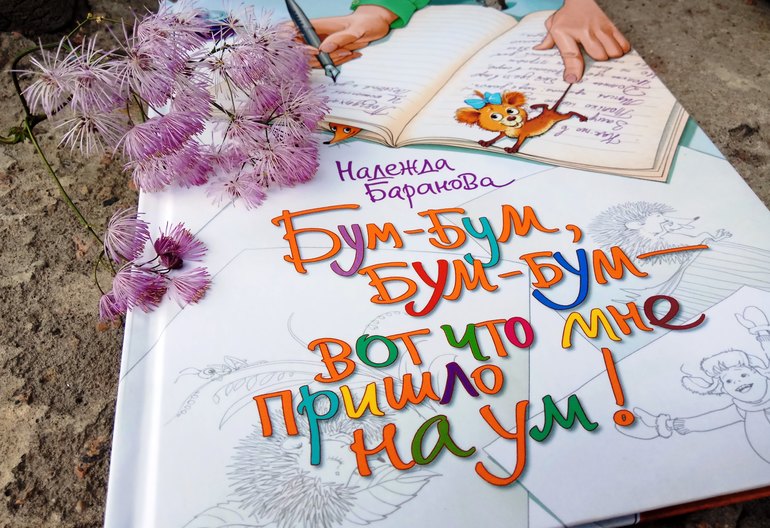 Надежда
Баранова
Бум-Бум,
Бум-бум—
вот что мне
пришло
на ум!